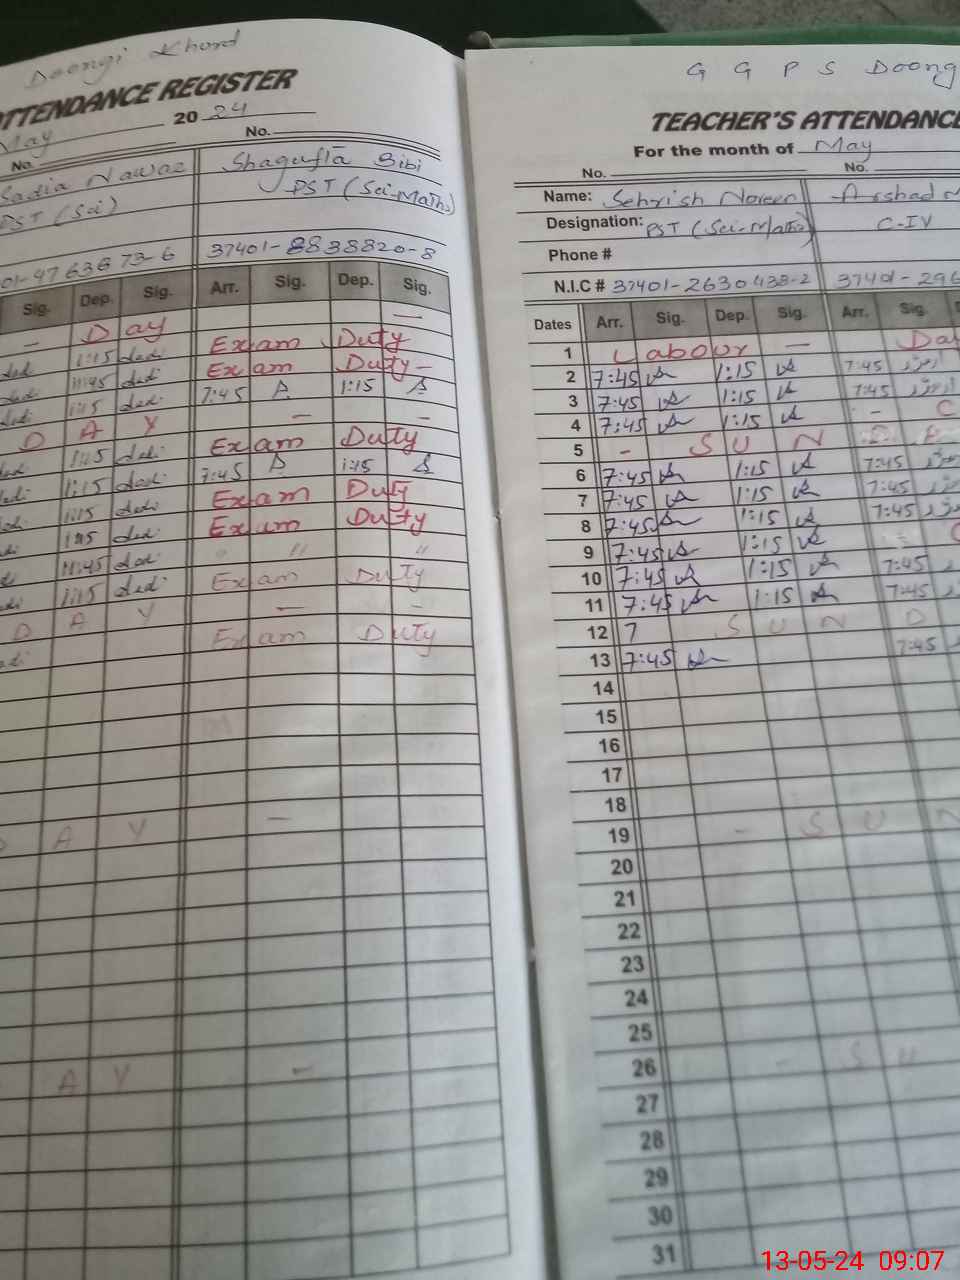 Doongi Khord
ATTENDANCE REGISTER
May 20 24
No. No.
Sadia Nawaz Shagufta Bibi
PST (Sci) PST (Sci-Maths)
01-4763673-6 37401-8838820-8
Sig. Dep. Sig. Arr. Sig. Dep. Sig.
— Day —
1:15 Exam Duty
11:45 Exam Duty -
1:15 7:45 1:15
D A Y — —
1:15 Exam Duty
1:15 7:45 1:15
1:15 Exam Duty
1:15 Exam Duty
11:45 " "
1:15 Exam Duty
D A Y — -
Exam Duty
D A Y —
A Y -
G G P S Doong
TEACHER'S ATTENDANCE
For the month of May
No. No.
Name: Sehrish Noreen Arshad M
Designation: PST (Sci-Maths) C-IV
Phone #
N.I.C # 37401-2630438-2 37401-296
Dates Arr. Sig. Dep. Sig. Arr. Sig. D
1 Labour — Da
2 7:45 1:15 7:45
3 7:45 1:15 7:45
4 7:45 1:15 - C
5 - S U N D
6 7:45 1:15 7:45
7 7:45 1:15 7:45
8 7:45 1:15 7:45
9 7:45 1:15
10 7:45 1:15 7:45
11 7:45 1:15 7:45
12 7 S U N D
13 7:45 7:45
14
15
16
17
18
19 - S U N
20
21
22
23
24
25
26 - S U
27
28
29
30
31
13-05-24 09:07